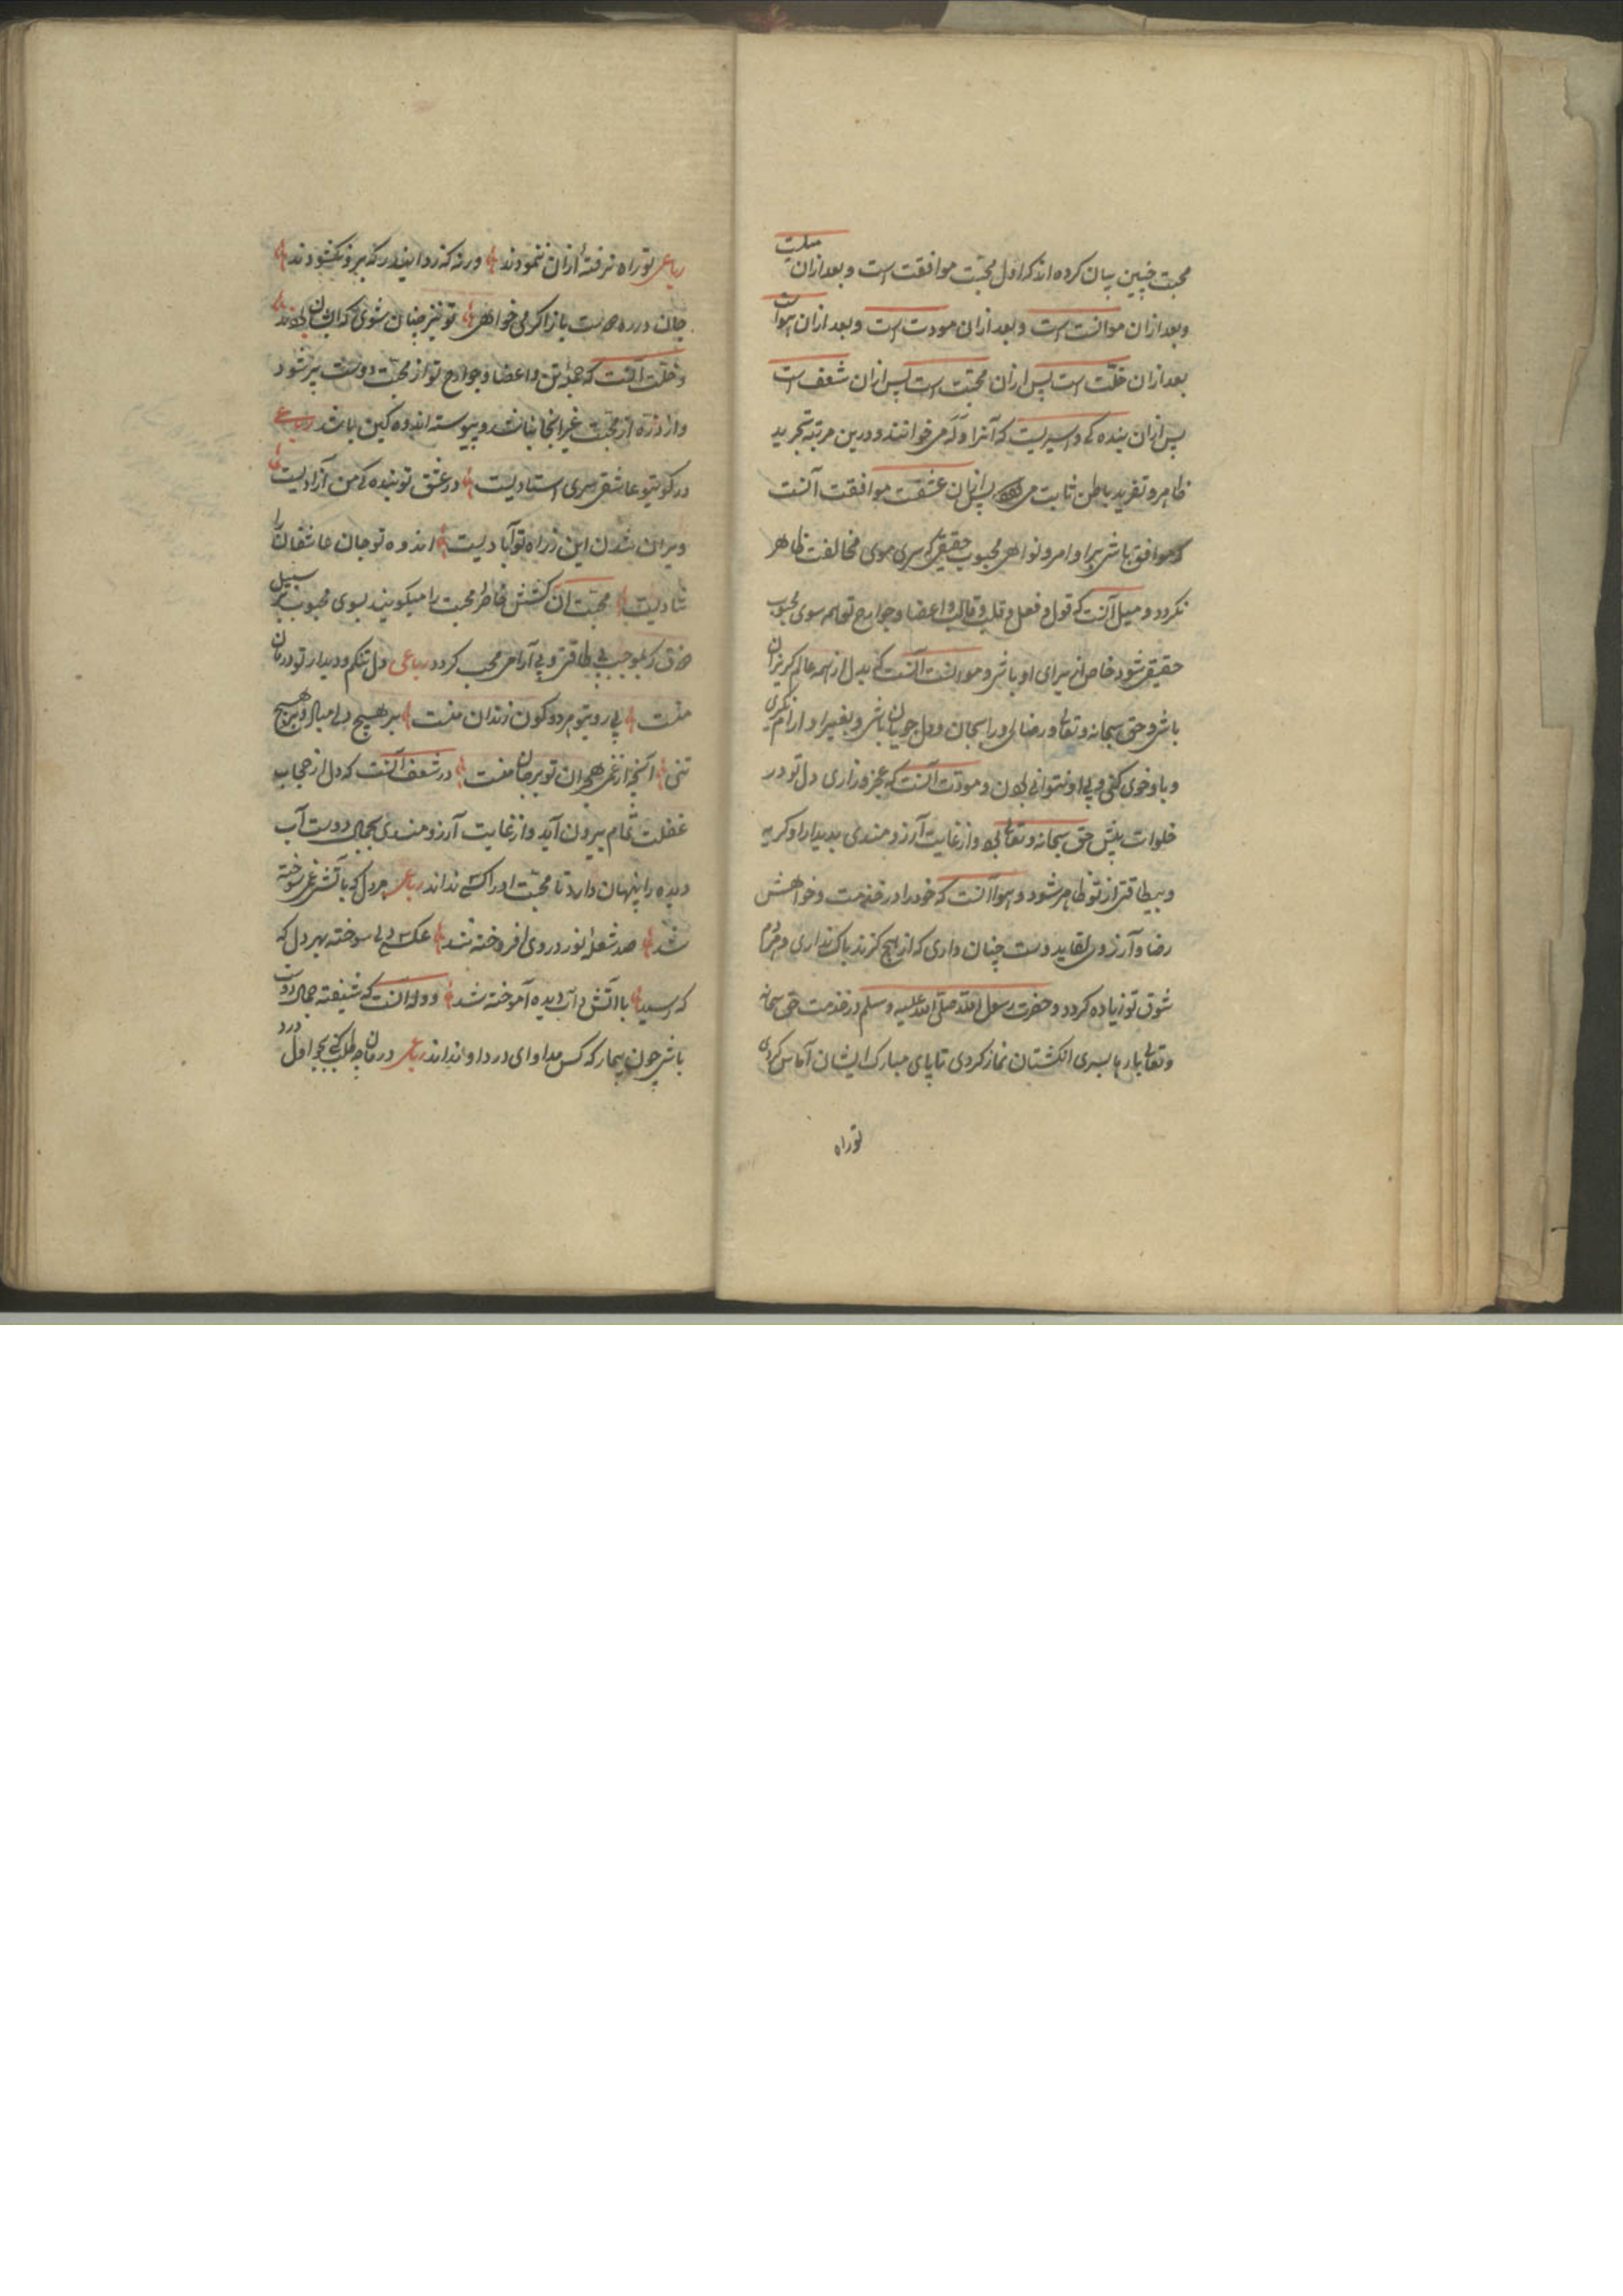 محبت چنین بیان کرده اند که اول محبت موافقت است و بعد ازان میلست
و بعد ازان موانست است و بعد ازان مودت است و بعد ازان هواست
بعد ازان خلّت است پس ازان محبت است پس ازان شعف است
پس ازان بنده کی و است که آنرا وَلَه می خوانند و درین مرتبه تجرید
ظاهر و تفرید باطن ثابت می پس ازان عشقست موافقت آنست
که موافق باشی برا و امر و نواهی محبوب حقیقی که سری موی مخالفت ظاهر
نکردد و میل آنست که قول و فعل و قلب و قالب و اعضا و جوارح تو همه سوی محبوب
حقیقی شود خاص از برای او باشی و موانست آنست که بدل از همه عالم کریزان
باشی و حق سبحانه و تعالی و رضای ورا بجان و دل جویان باشی و بغیر او ارام نکری
و با او خوی کنی و بی او نتوانی بودن و مودت آنست که عجز و زاری دل تو در
خلوات پیش حق سبحانه و تعالی بود و از غایت آرزومندی بدیدار او کریه
و بیطاقتی از تو ظاهر شود و هوا آنست که خود را در خدمت و خواهش
رضا و آرزوی لقاید وست چنان داری که از هیچ کزند باک نداری و هر دم
شوق تو زیاده کردد و حضرت رسول الله صلی الله علیه و سلم در خدمت حق سبحانه
و تعالی بارها بسری انکشتان نماز کردی تا پای مبارک ایشان آماس کردی
تو راه
رباعی تو راه نرفتهٔ ازان ننمودند ورنه که زد این در که برو نکشودند
جان در ره دوست باز اکر می خواهی تو نیز چنان شوی که ایشان بودند
و خلّت آنست که همه تن و اعضا و جوارح تو از محبت دوست پر شود
و از ذرّه از محبت غیر انجا نباشد و پیوسته اندوه کین باشد رباعی
در کوی تو عاشقی سری استادیست در عشق تو بنده کی من آزادیست
ویران شدن این ز راه تو آبادیست اندوه تو جان عاشقان را
شادیست محبت آن کشش خاطر محبت را میکویند بسوی محبوب بر سبیل
صدق که موجب بی طاقتی و بی آرامی محب کردد رباعی دل تنکم و دیدار تو درمان
منست بی روی تو هر دو کون زندان منست بر هیچ دلی مباد و بر هیچ
تنی آنچه از غم هجران تو بر جان منست در شعف آنست که دل از حجاب
غفلت تمام بیرون آید و از غایت آرزومندی بجمال دوست آب
دیده را پنهان دارد تا محبت او را کسی نداند رباعی هر دل که باتش غم سوخته
شد صد شعلهٔ نور در وی افروخته شد عکس دلی سوخته بهر دل که
که رسید با اتش و آب دیده آموخته شد و وله آنست که شیفته جمال دوست
باشی چون بیمار که کس مداوای درد او نداند رباعی درمان چه طلب کنی بجو اول درد